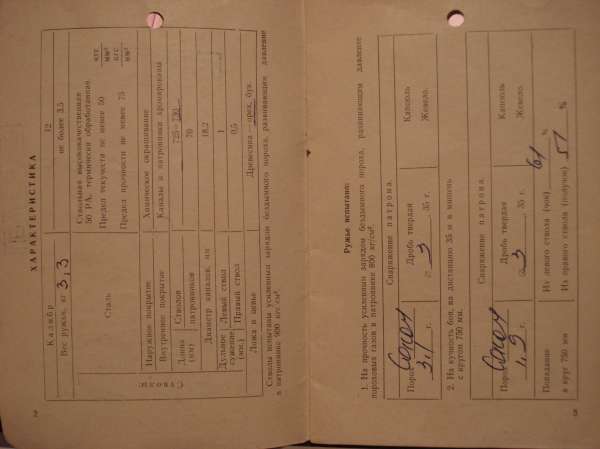 ХАРАКТЕРИСТИКА
Калибр 12
Вес ружья, кг 3,3 не более 3,5
Стволы
Сталь
Ствольная высококачественная
50 РА, термически обработанная
Предел текучести не менее 50 кгс/мм²
Предел прочности не менее 75 кгс/мм²
Наружное покрытие Химическое окрашивание
Внутреннее покрытие Каналы и патронники хромированы
Длина (мм) Стволов 725—750
патронников 70
Диаметр каналов, мм 18,2
Дульное сужение (мм.) Левый ствол 1
Правый ствол 0,5
Ложа и цевье Древесина — орех, бук
Стволы испытаны усиленным зарядом бездымного пороха, развивающим давление
в патроннике 900 кгс/см².
2
Ружье испытано:
1. На прочность усиленным зарядом бездымного пороха, развивающим давление
пороховых газов в патроннике 900 кг/см².
Снаряжение патрона
Порох Сокол 3,1 г. Дробь твердая 3 35 г. Капсюль Жевело.
2. На кучность боя, на дистанцию 35 м в мишень
с кругом 750 мм.
Снаряжение патрона
Порох Сокол 1,9 г. Дробь твердая 3 35 г. Капсюль Жевело.
Попадание
в круг 750 мм
Из левого ствола (чок) 61 %
Из правого ствола (получок) 51 %
3